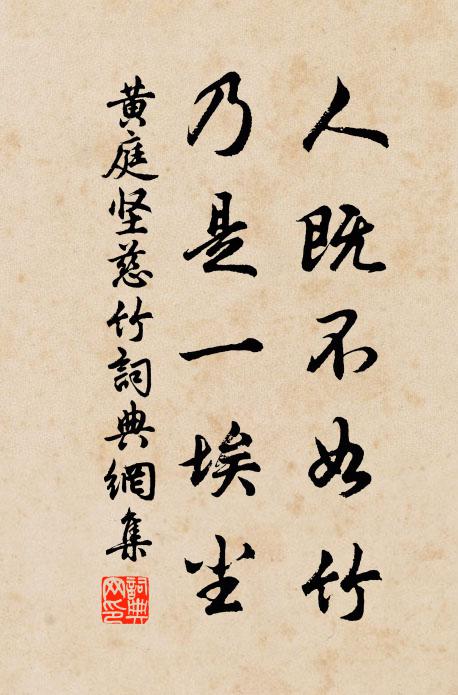 人既不如竹
乃是一埃尘
黄庭坚慈竹詞典網集
詞典網印